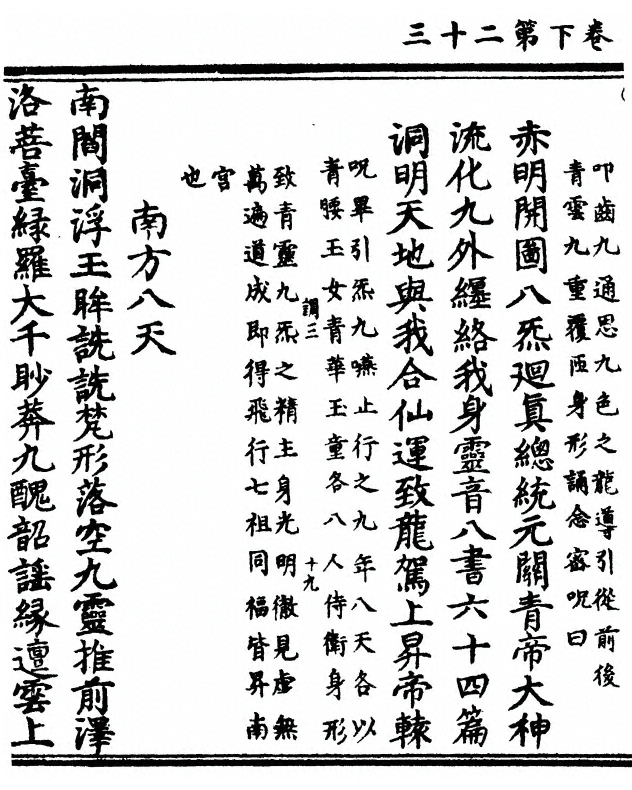 卷下第二十三
叩齒九通思九色之龍導引從前後
青雲九重覆匝身形誦念密呪曰
赤明開圖八炁廻真總統元關青帝大神
流化九外纏絡我身靈音八書六十四篇
洞明天地與我合仙運致龍駕上昇帝轅
呪畢引炁九嚥止行之九年八天各以
青腰玉女青華玉童各八人侍衛身形
謂三
十九
致青靈九炁之精主身光明徹見虛無
萬遍道成即得飛行七祖同福皆昇南
宮
也
南方八天
南閻洞浮玉眸詵詵梵形落空九靈推前澤
洛菩臺緑羅大千眇莽九醜韶謡緣邅雲上